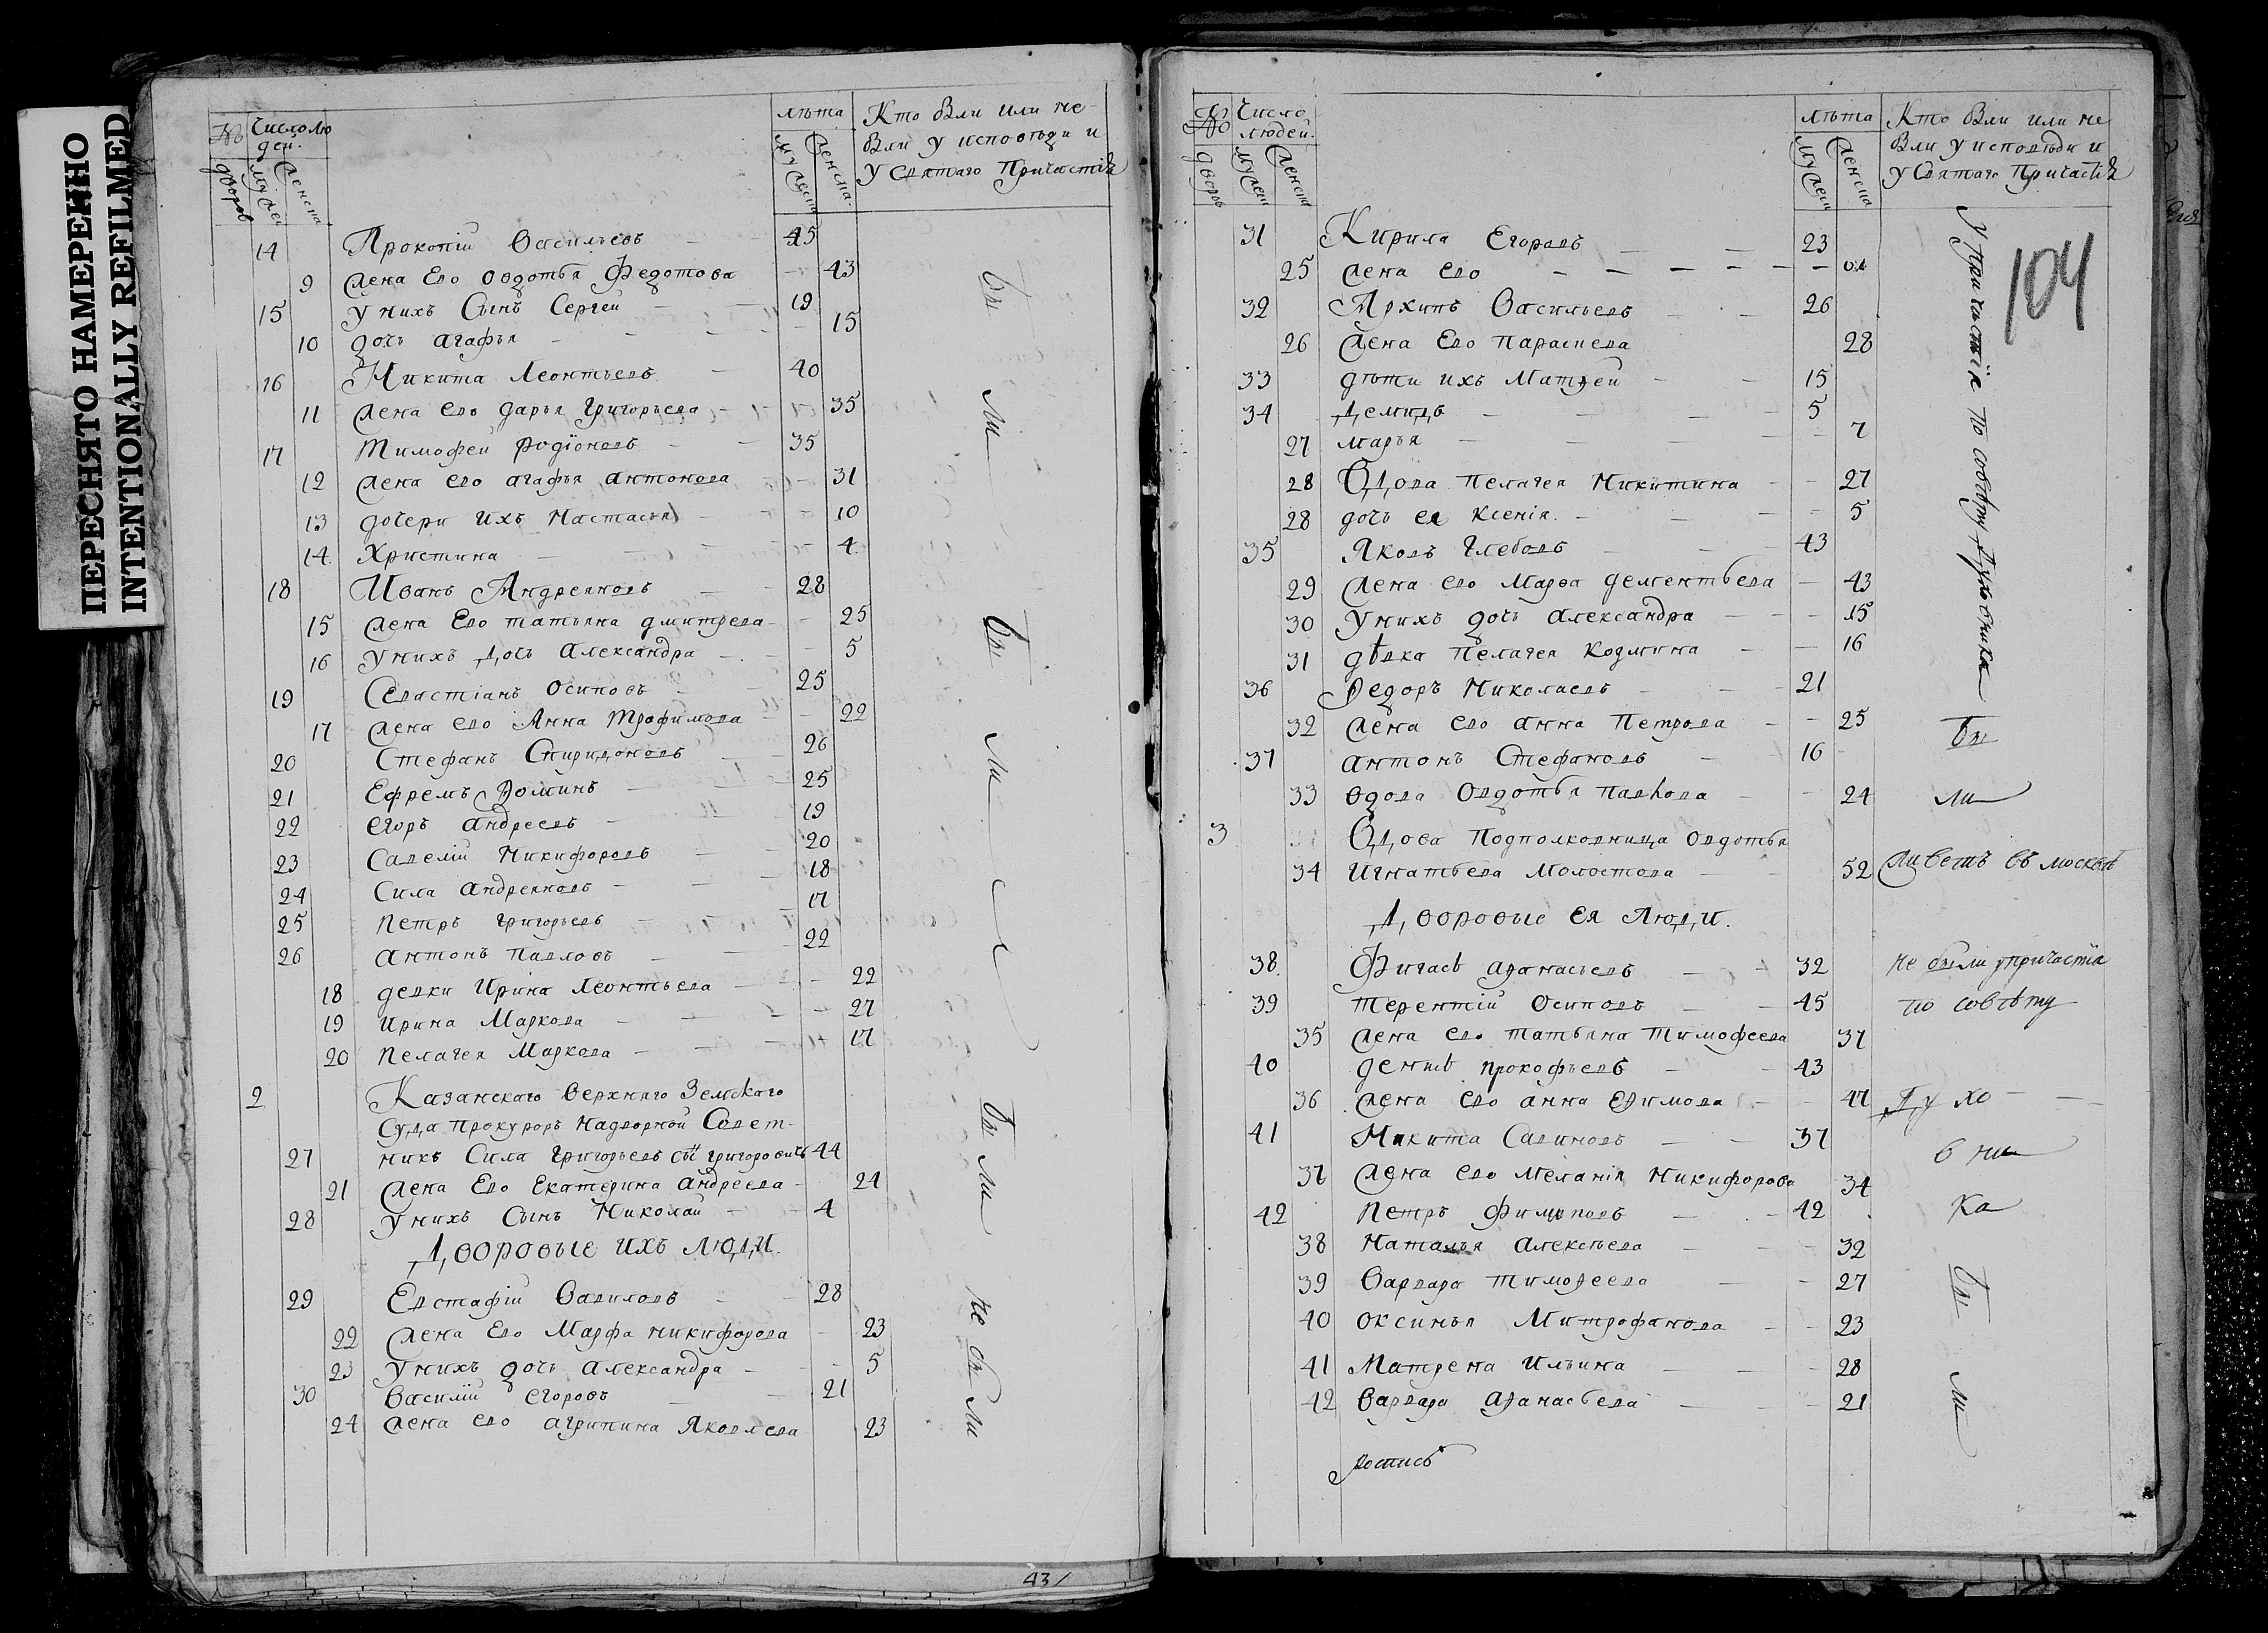 ПЕРЕСНЯТО НАМЕРЕННО
INTENTIONALLY REFILMED
№ дворов
Число людей.
мужеск
женска
лѣта
мужеска
женска.
Кто были или не
были у исповѣди и
у святаго Причастія
14 Прокопій Васильевъ 45
9 жена Его Овдотья Федотова 43
15 у нихъ Сынъ Сергеи 19
10 дочь агафья 15
16 Никита Леонтьевъ 40
11 жена евь дарья Григорьева 35
17 Тимофеи Родіоновъ 35
12 жена ево агафья антонова 31
13 дочери ихъ Настасья 10
14 Христина 4
18 Иванъ Андреяновъ 28
15 жена Ево татьяна дмитрева 25
16 у нихъ дочь Александра 5
19 Севастіанъ Осиповъ 25
17 жена ево Анна Трофимова 22
20 Стефанъ Спиридоновъ 26
21 Ефремъ Фоминъ 25
22 егоръ андреевъ 19
23 Савелій Никифоровъ 20
24 Сила андреяновъ 18
25 петръ григорьевъ 17
26 антонъ павловъ 22
18 девки Ирина Леонтьева 22
19 ирина Маркова 27
20 пелагея Маркова 17
Бы
ли
Бы
ли
2 Казанскаго верхняго Земскаго
Суда прокуроръ надворной Совет-
27 никъ Сила григорьевъ сы григоровичь 44
21 жена Ево Екатерина андреева 24
28 у нихъ Сынъ Николаи 4
Бы ли
Дворовые ихъ люди.
29 Евстафіи Вавиловъ 28
22 жена Ево Марфа никифорова 23
23 у нихъ дочь александра 5
30 василіи егоровъ 21
24 жена ево агрипина Яковлева 23
не бы ли
43
№ дворов
Число людей.
мужеск
женска
лѣта
мужеск
женска
Кто были или не
были у исповѣди и
у Святаго Причастія
104
31 Кирила Егоровъ 23
25 жена ево
32 Архипъ Васильевъ 26
26 жена Ево Параскева 28
33 дѣти ихъ Матвеи 15
34 Демидъ 5
27 марья 7
28 Вдова пелагея Никитина 27
28 дочь ея ксенія. 5
35 Яковъ Глебовъ 43
29 жена ево Марѳа дементьева 43
30 у нихъ дочь александра 15
31 дѣвка Пелагея Козмина 16
36 Ѳедоръ Николаевъ 21
32 жена ево анна Петрова 25
37 антонъ Стефановъ 16
33 вдова Овдотья павлова 24
У причастія по совѣту Духовника
Бы
ли
3 Вдова Подполковница Овдотья
34 Игнатьева Молостова 52 живетъ въ москвѣ
Дворовые Ея Люди.
38. Фигасъ аѳанасьевъ 32 не были у причастія
39 терентіи Осиповъ 45 по совѣту
35 жена ево татьяна тимофеева 37
40 денисъ прокофьевъ 43
36 жена ево анна еѳимова 47 Духо
41 Никита Савиновъ 37 вни
37 жена ево меланія никифорова 34
42 петръ филиповъ 42 ка
38 Наталья алексѣева 32
39 варвара тимоѳеева 27
40 оксинья Митрофанова 23
41 Матрена ильина 28
42 варвара аѳанасьева 21
Бы
ли
роспись